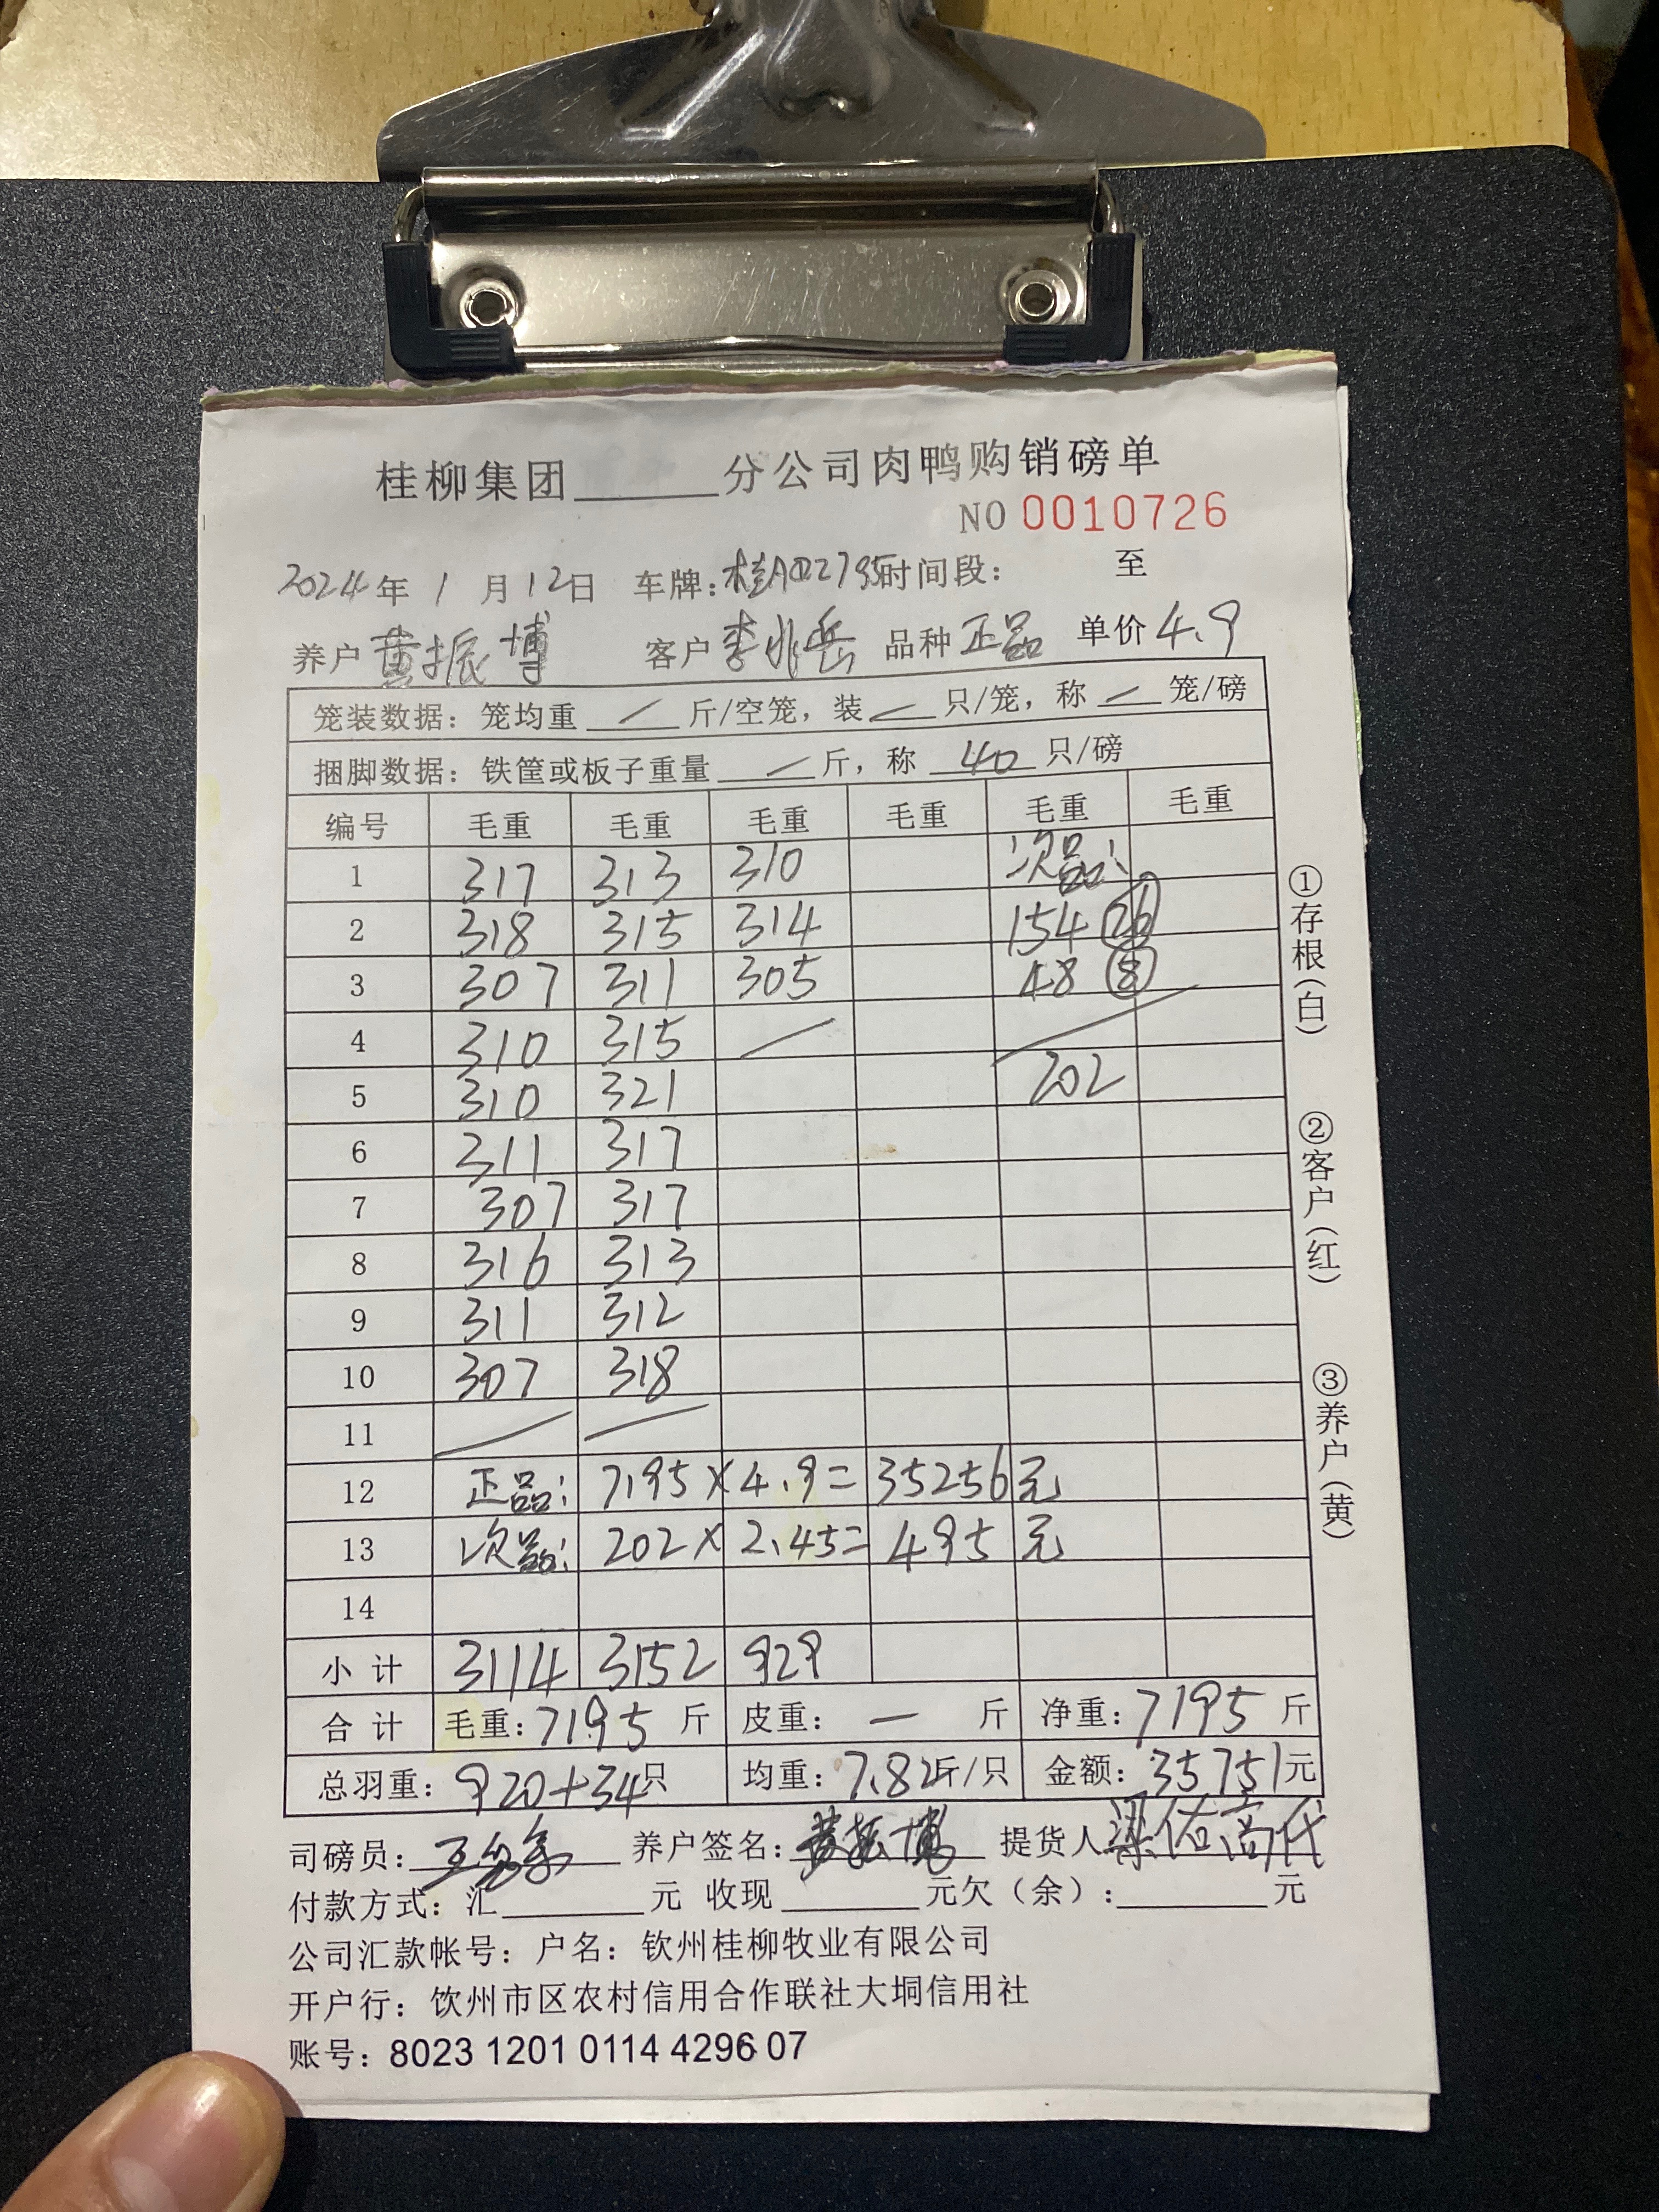 桂柳集团______分公司肉鸭购销磅单
NO 0010726
2024年 1 月 12日 车牌: 时间段: 至
养户 黄振博 客户 李兆岳 品种 正品 单价 4.9
笼装数据: 笼均重 / 斤/空笼, 装 / 只/笼, 称 / 笼/磅
捆脚数据: 铁筐或板子重量 / 斤, 称 40 只/磅
编号 毛重 毛重 毛重 毛重 毛重 毛重
1 317 313 310 次品:
2 318 315 314 154 26
3 307 311 305 48 8
4 310 315 /
5 310 321 202
6 311 317
7 307 317
8 316 313
9 311 312
10 307 318
11 / /
12 正品: 7195 × 4.9 = 35256 元
13 次品: 202 × 2.45 = 495 元
14
小计 3114 3152 929
合计 毛重: 7195 斤 皮重: — 斤 净重: 7195 斤
总羽重: 920+34只 均重: 7.82斤/只 金额: 35751元
司磅员: 养户签名: 黄振博 提货人 梁佑高代
付款方式: 汇______元 收现______元欠(余):______元
公司汇款帐号: 户名: 钦州桂柳牧业有限公司
开户行: 钦州市区农村信用合作联社大垌信用社
账号: 8023 1201 0114 4296 07
①存根(白) ②客户(红) ③养户(黄)